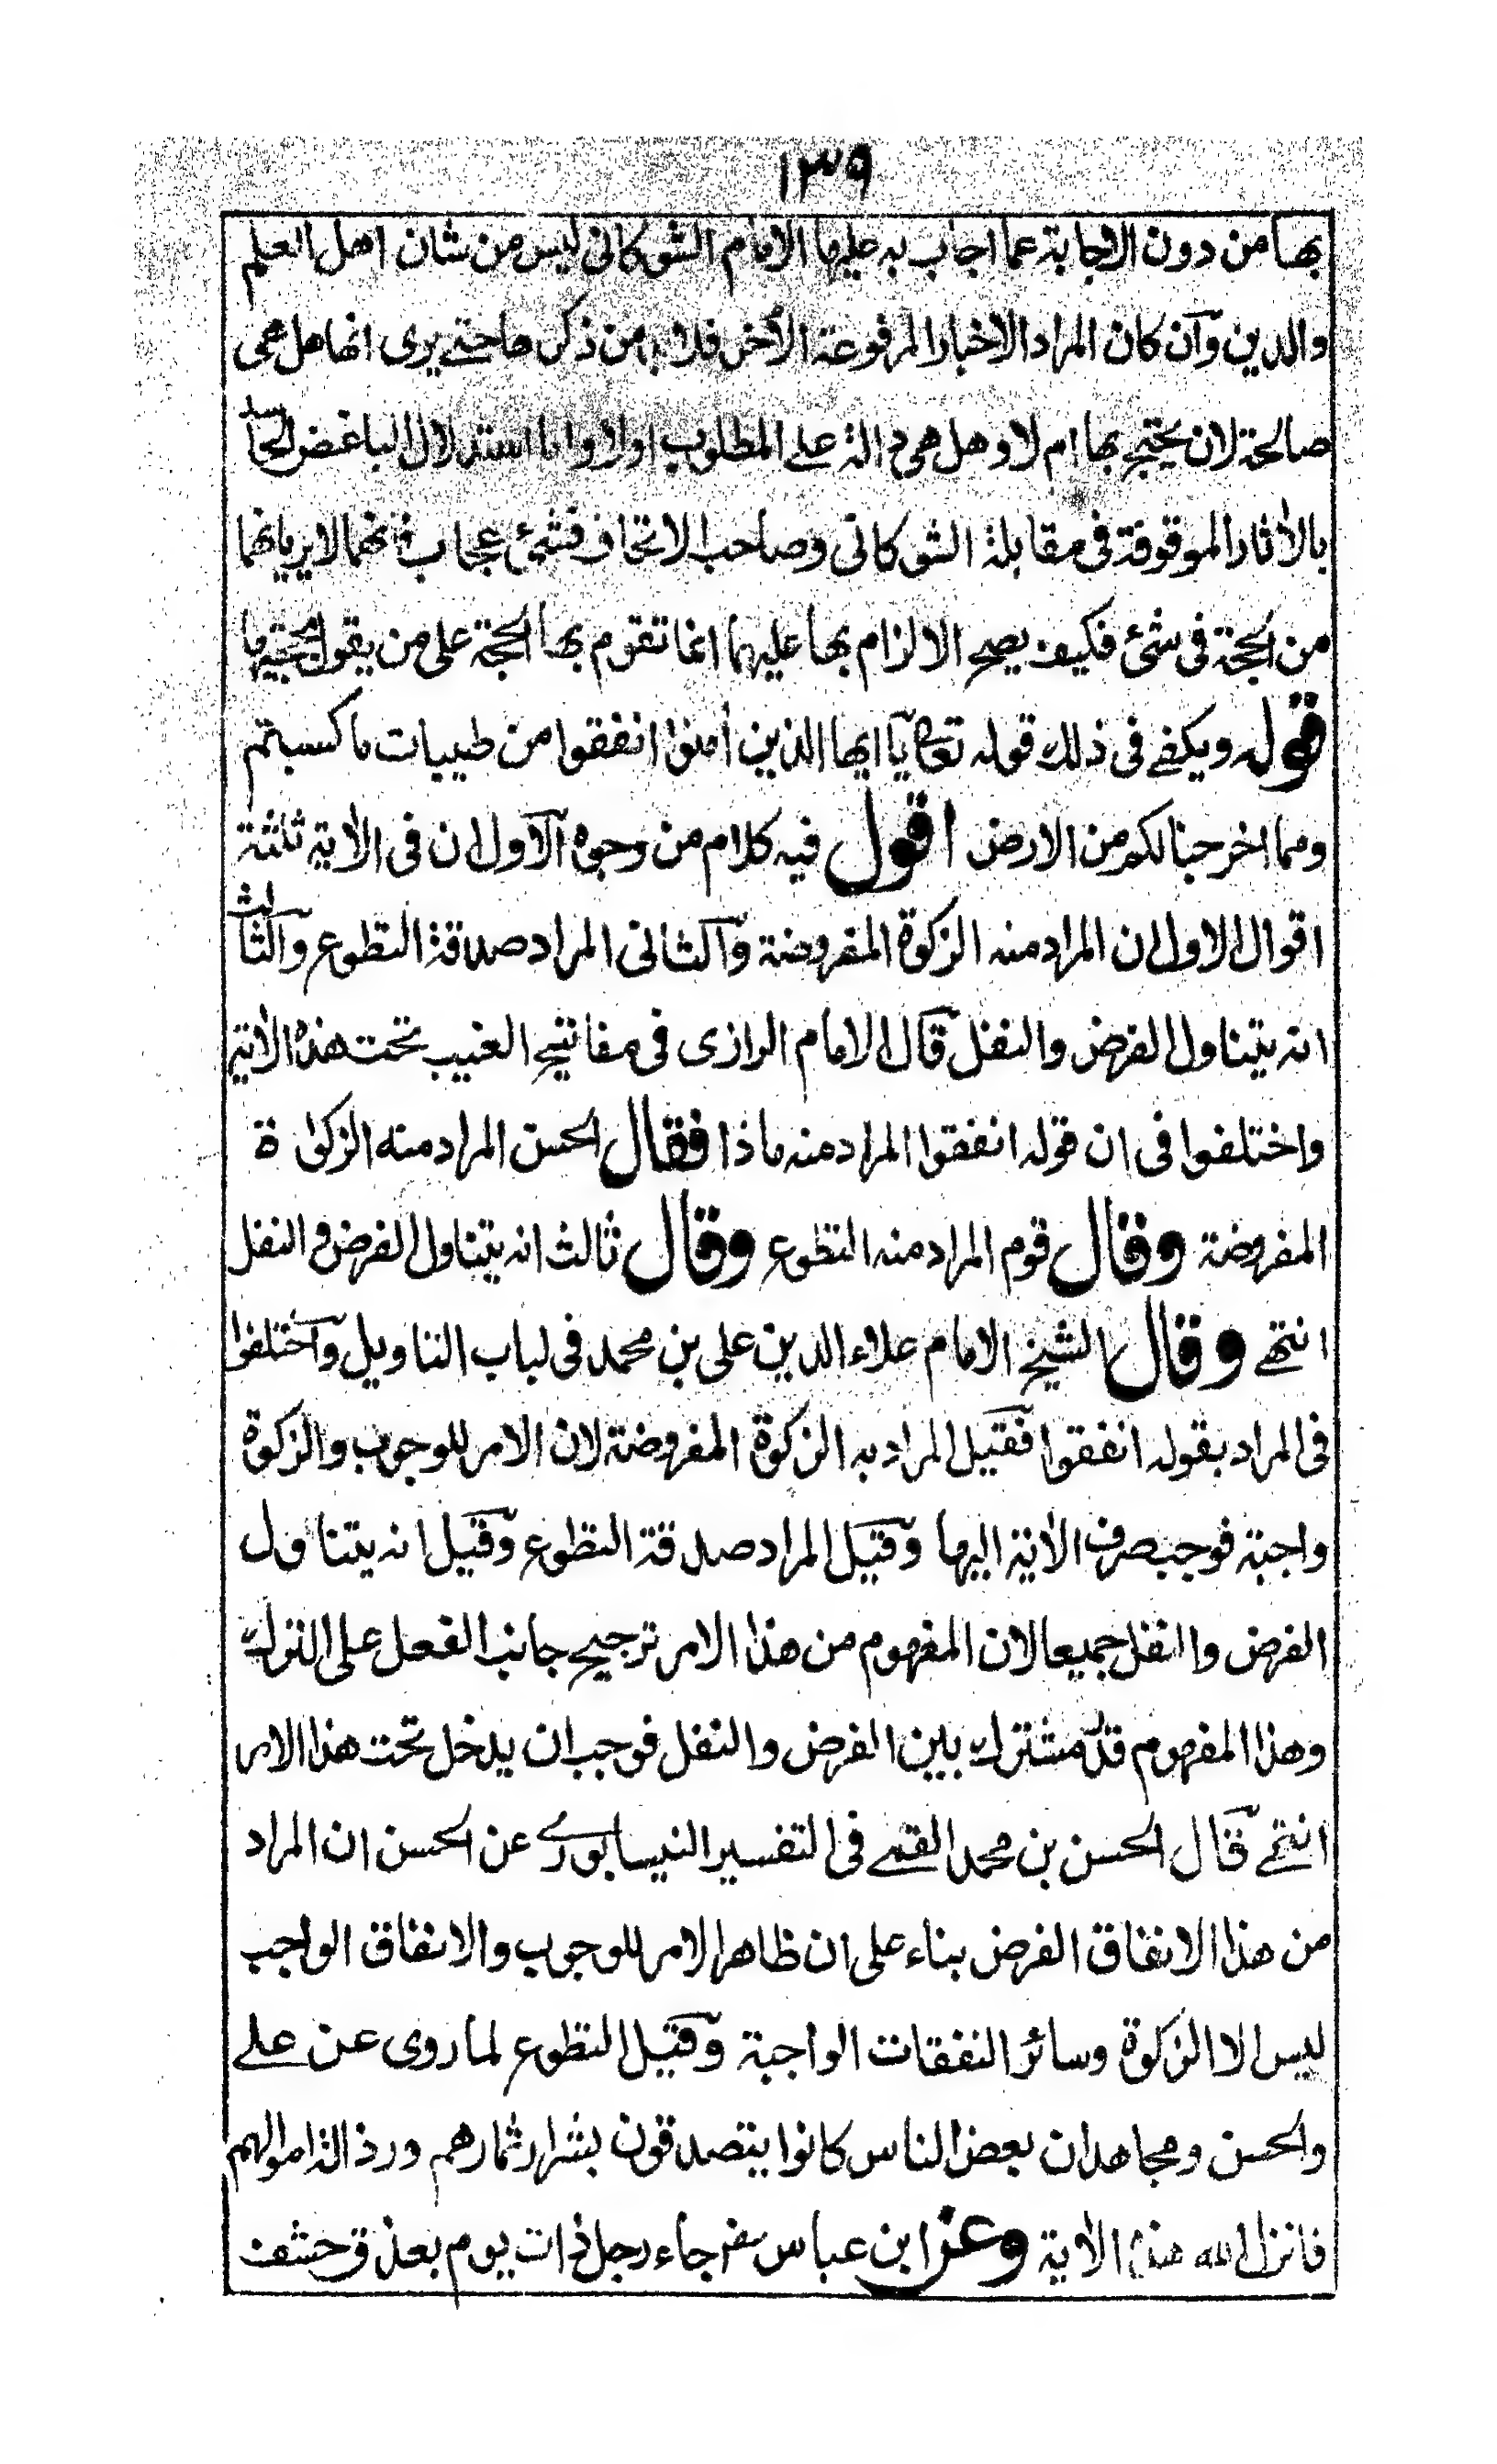 ١٣٩
بها من دون الاجابة عما اجاب به عليها الامام الشوكانى ليس من شان اهل العلم
والدين وآن كان المراد الاخبار المرفوعة الأخر فلا بد من ذكرها حتے يرى انها هل هى
صالحة لان يحتج بها ام لا وهل هى دالة على المطلوب اولا واما استدلال الباغض الحاسد
بالأثار الموقوفة فى مقابلة الشوكانى وصاحب الاتحاف فشئ عجاب فانهما لا يريانها
من الحجة فى شئ فكيف يصح الالزام بها عليهما انما تقوم بها الحجة على من يقول بحجيتها
قوله ويكفے فى ذلك قوله تعالى يآ ايها الذين أمنوا انفقوا من طيبات ما كسبتم
ومما اخرجنا لكم من الارض اقول فيه كلام من وجوه الآول ان فى الأية ثلثة
اقوال الاول ان المراد منه الزكوة المفروضة وآلثانى المراد صدقة التطوع وآلثالث
انه يتناول الفرض والنفل قآل الامام الرازى فى مفاتيح الغيب تحت هذه الأية
واختلفوا فى ان قوله انفقوا المراد منه ماذا فقال الحسن المراد منه الزكوٰة
المفروضة وقال قوم المراد منه التطوع وقال ثالث انه يتناول الفرض والنفل
انتهے وقال الشيخ الامام علاء الدين على بن محمد فى لباب التاويل وآختلفوا
فى المراد بقوله انفقوا فقيل المراد به الزكوة المفروضة لان الامر للوجوب والزكوة
واجبة فوجب صرف الأية اليها وقيل المراد صدقة التطوع وقيل انه يتناول
الفرض والنفل جميعا لان المفهوم من هذا الامر ترجيح جانب الفعل على الترك
وهذا المفهوم قدر مشترك بين الفرض والنفل فوجب ان يدخل تحت هذا الامر
انتهے قآل الحسن بن محمد القمے فى التفسير النيسابورے عن الحسن ان المراد
من هذا الانفاق الفرض بناء على ان ظاهر الامر للوجوب والانفاق الواجب
ليس الا الزكوة وسائر النفقات الواجبة وقيل التطوع لما روى عن علے
والحسن ومجاهد ان بعض الناس كانوا يتصدقون بشرار ثمارهم ورذالة اموالهم
فانزل الله هذه الأية وعن ابن عباس رض جاء رجل ذات يوم بعذق حشف